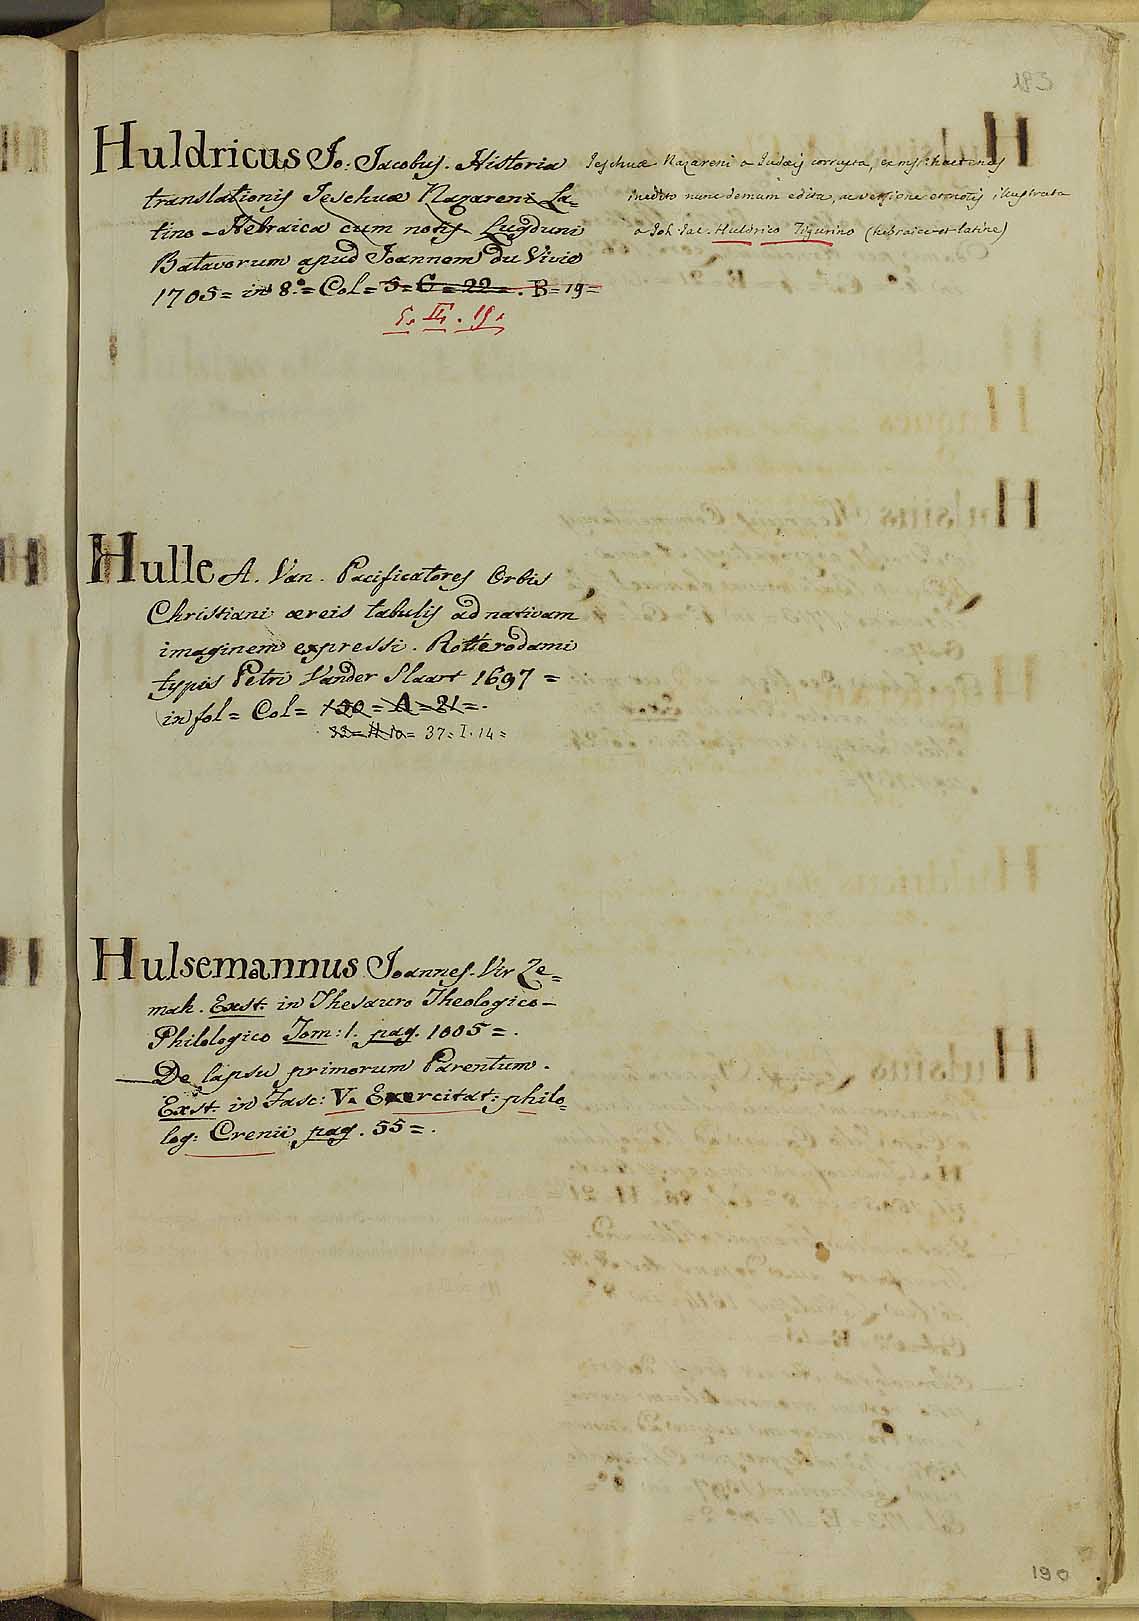 183
Huldricus Jo: Jacobus. Historia
translationis Jeschuæ Nazareni La=
tino-Hebraica cum notis Lugduni
Batavorum apud Joannem du Vivié
1705 = in 8.º = Col = 5 = C = 22 = . B = 19 =
5. II. 19.
Jeschuæ Nazareni a Judæis corrupta, ex mss: hactenus
inedito nunc demum edita, ac versione et notis illustrata
a Joh. Jac. Huldrico Tigurino (hebraice et latine)
Hulle A. Van. Pacificatores Orbis
Christiani æreis tabulis ad nativam
imaginem expressi. Rotterodami
typis Petri Vander Slaart 1697 =
in fol = Col = 130 = A = 21 = .
37 = I. 14 =
Hulsemannus Joannes. Vir Ze=
mah. Exst: in Thesauro Theologico-
Philologico Tom: 1. pag. 1005 = .
— De lapsu primorum Parentum.
Exst: in Fasc: V. Exercitat: philo=
log: Crenii pag. 55 = .
190